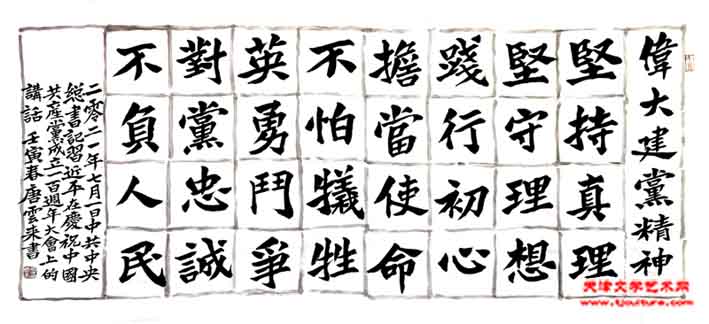 偉大建黨精神
堅持真理
堅守理想
踐行初心
擔當使命
不怕犧牲
英勇鬥爭
對黨忠誠
不負人民
二零二一年七月一日中共中央
總書記習近平在慶祝中國
共產黨成立一百週年大會上的
講話 壬寅春唐雲來書
天津文学艺术网
www.tjculture.com